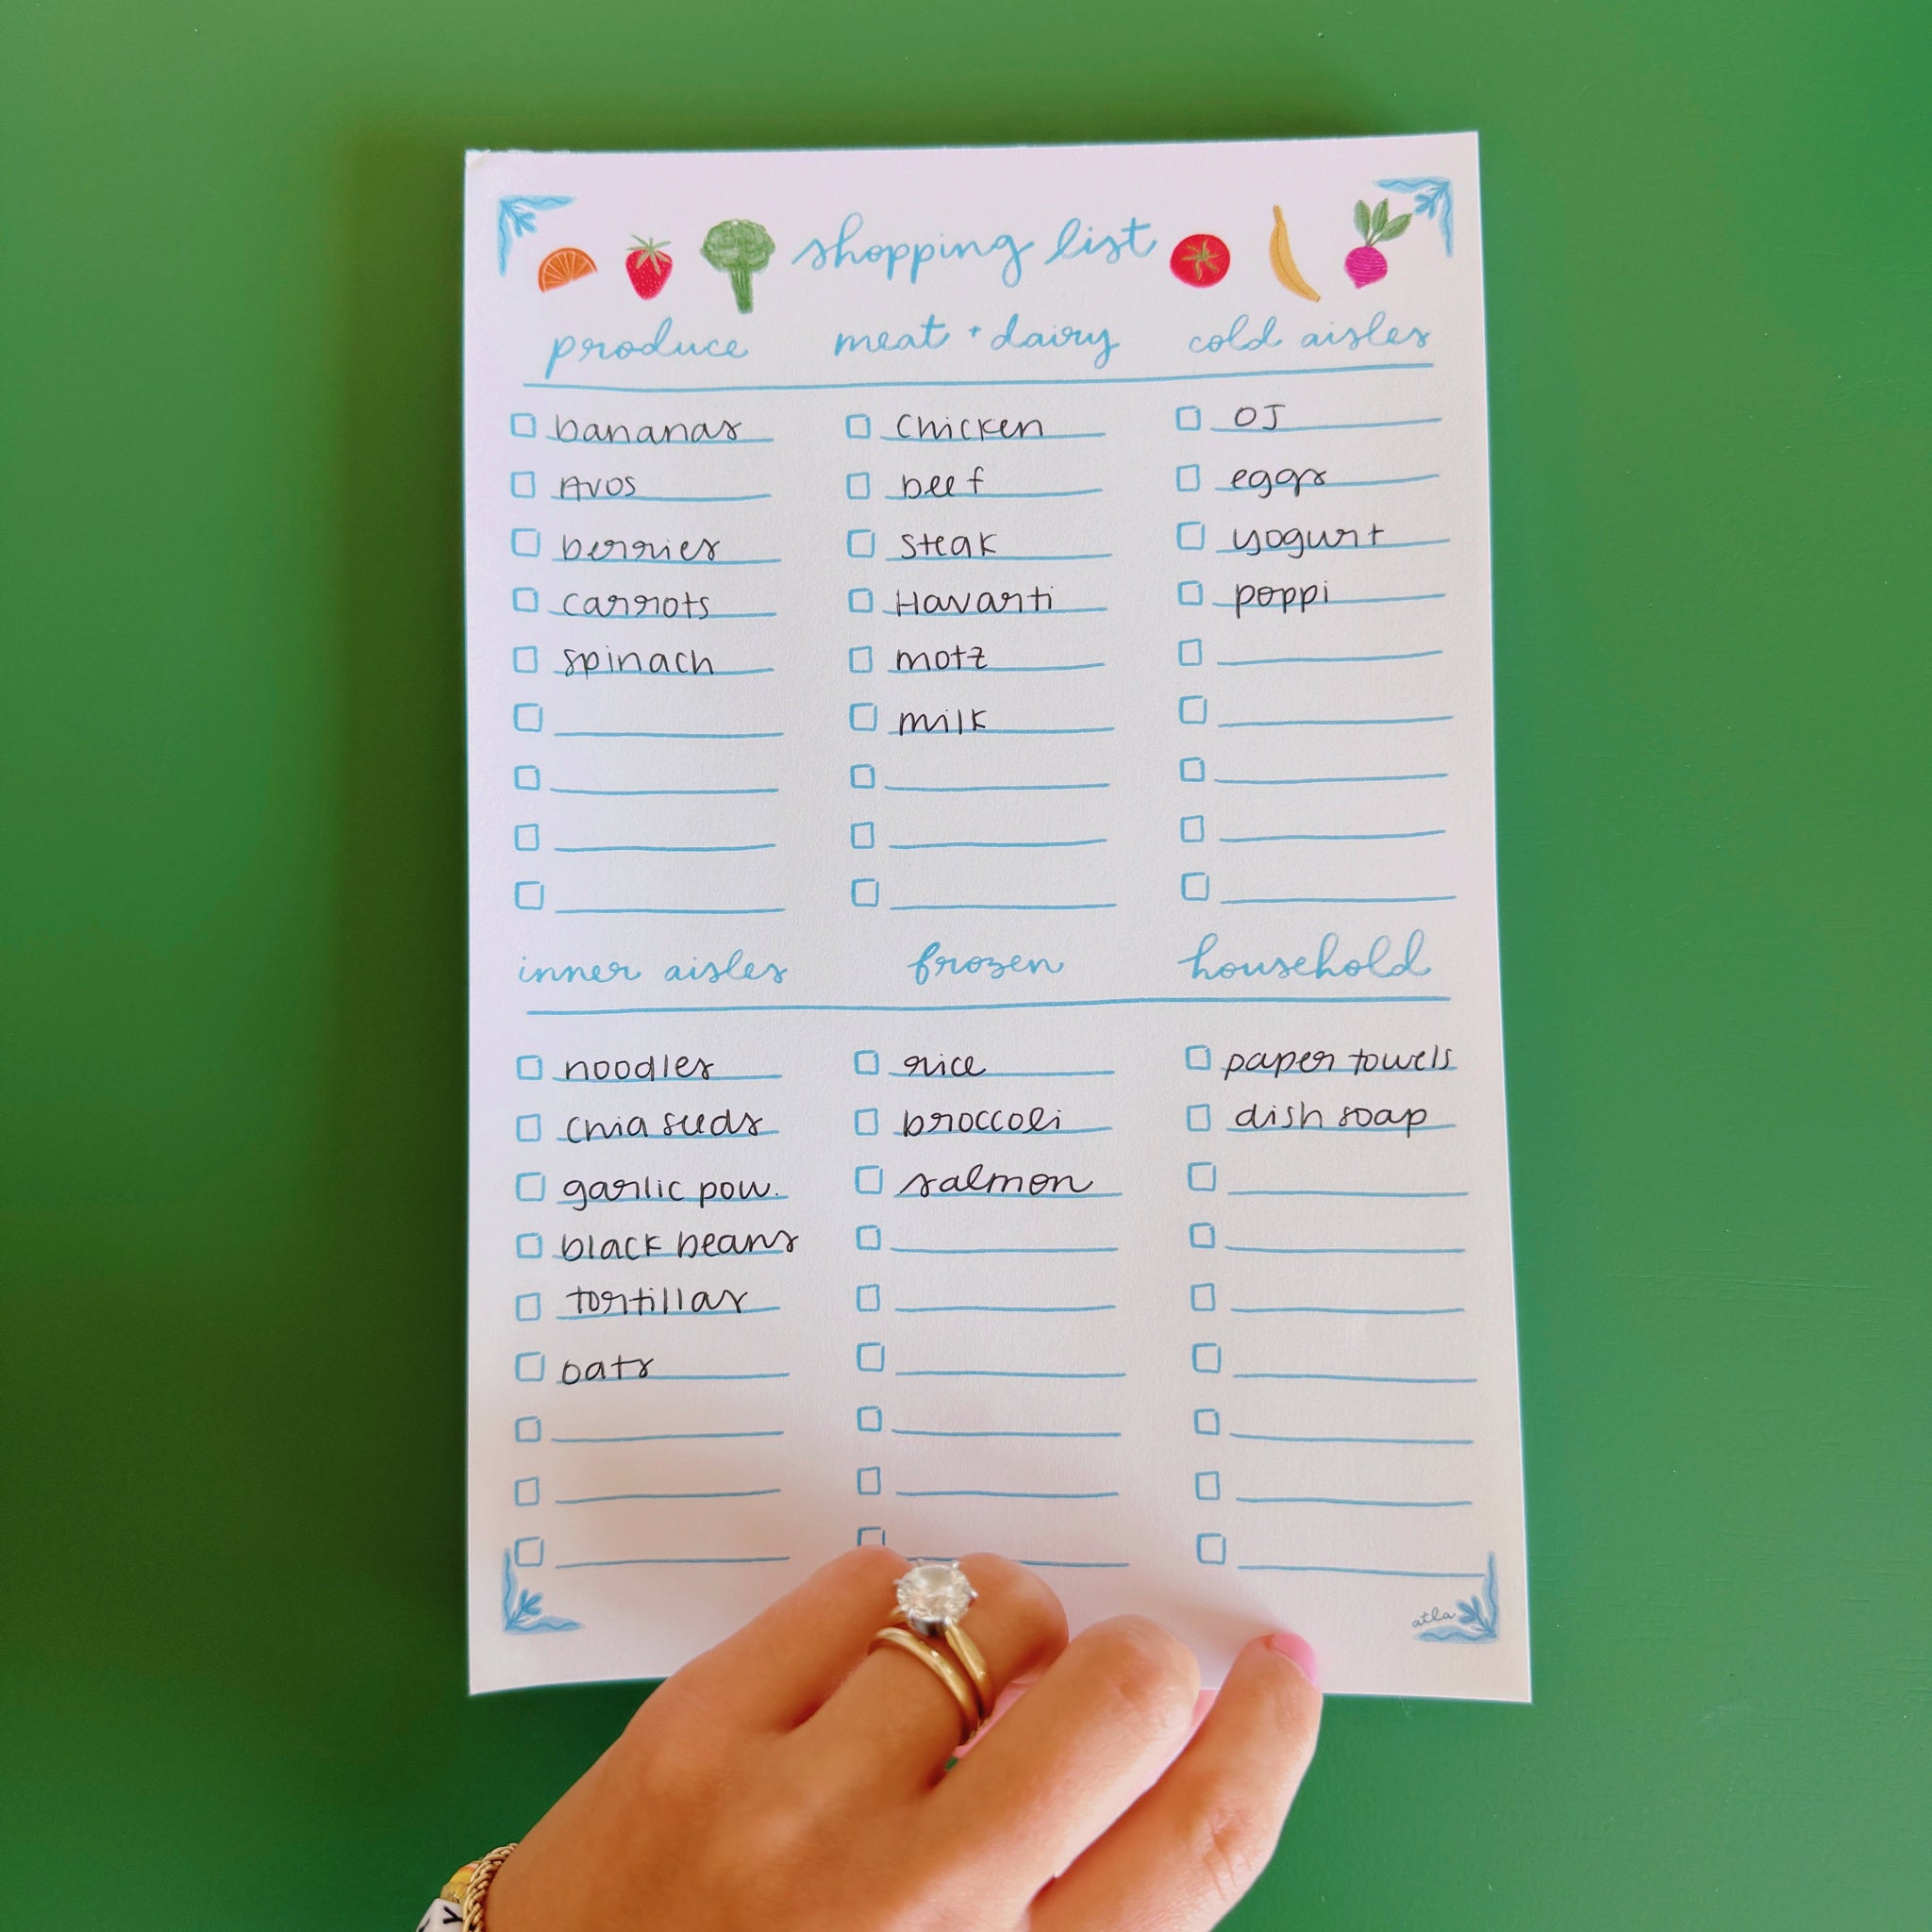 shopping list
produce
bananas
Avos
berries
carrots
spinach
meat + dairy
Chicken
beef
Steak
Havarti
motz
milk
cold aisles
OJ
eggs
yogurt
poppi
inner aisles
noodles
chia seeds
garlic pow.
black beans
tortillas
oats
frozen
rice
broccoli
salmon
household
paper towels
dish soap
atla
Y